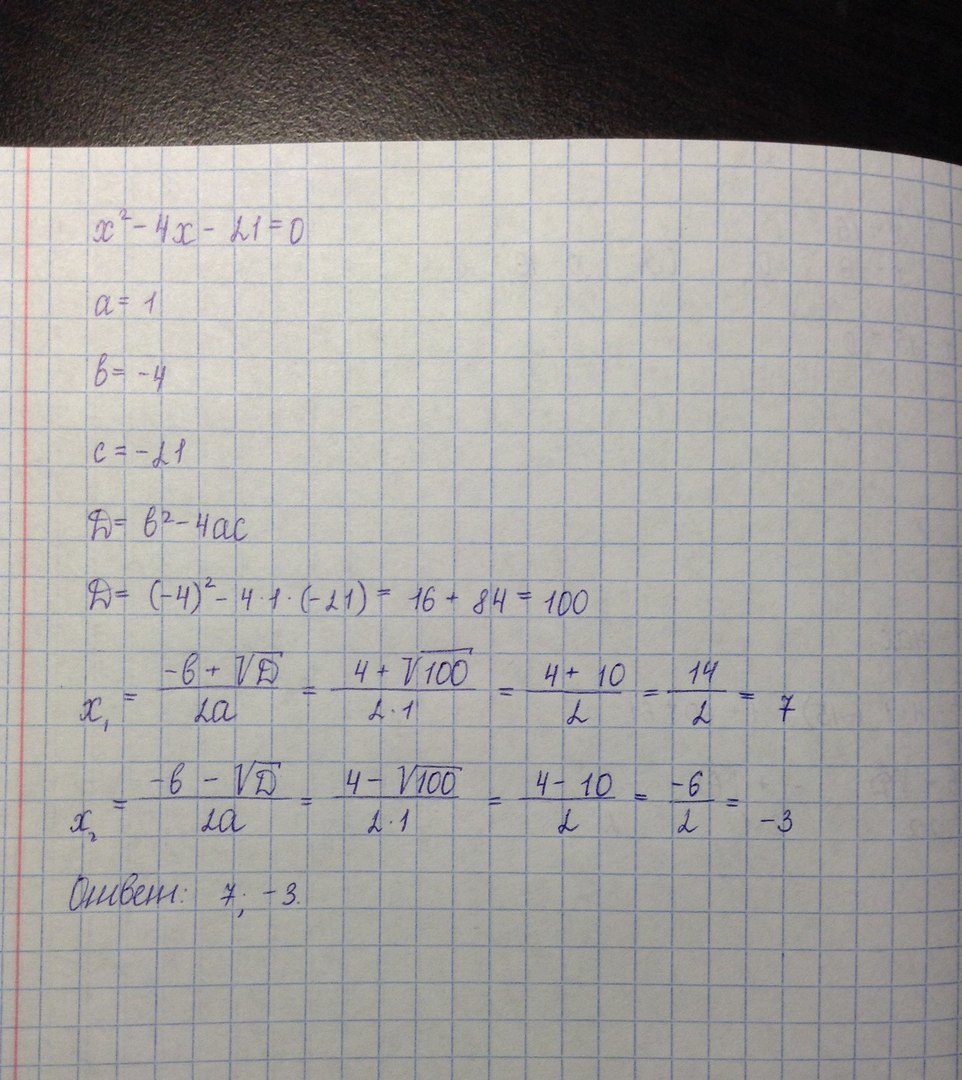 x² - 4x - 21 = 0
a = 1
b = -4
c = -21
D = b² - 4ac
D = (-4)² - 4·1·(-21) = 16 + 84 = 100
x₁ = (-b + √D)/(2a) = (4 + √100)/(2·1) = (4 + 10)/2 = 14/2 = 7
x₂ = (-b - √D)/(2a) = (4 - √100)/(2·1) = (4 - 10)/2 = -6/2 = -3
Ответ: 7; -3.